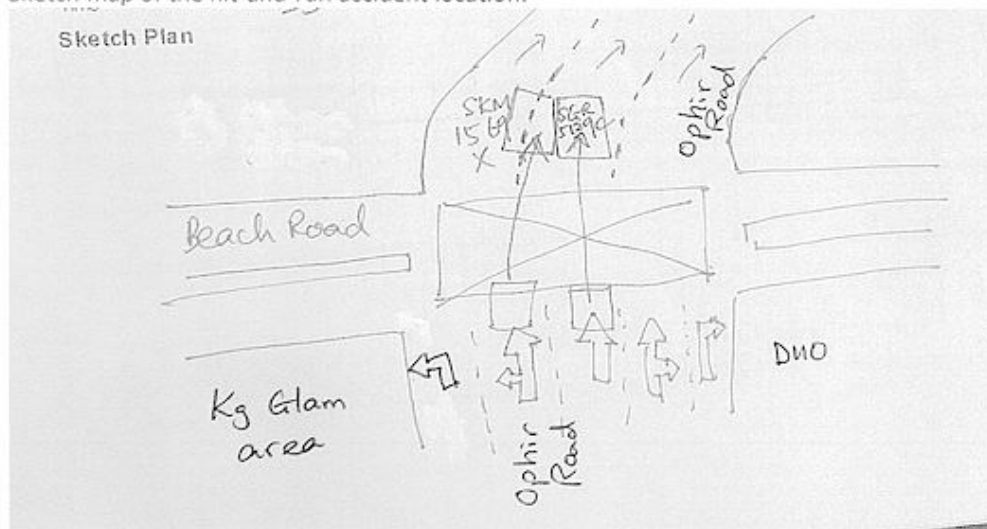 Sketch map of the hit-and-run accident location.
Sketch Plan
SKM
15 69
X
SGR
Ophir
Road
Beach Road
Kg Glam
area
DUO
Ophir
Road